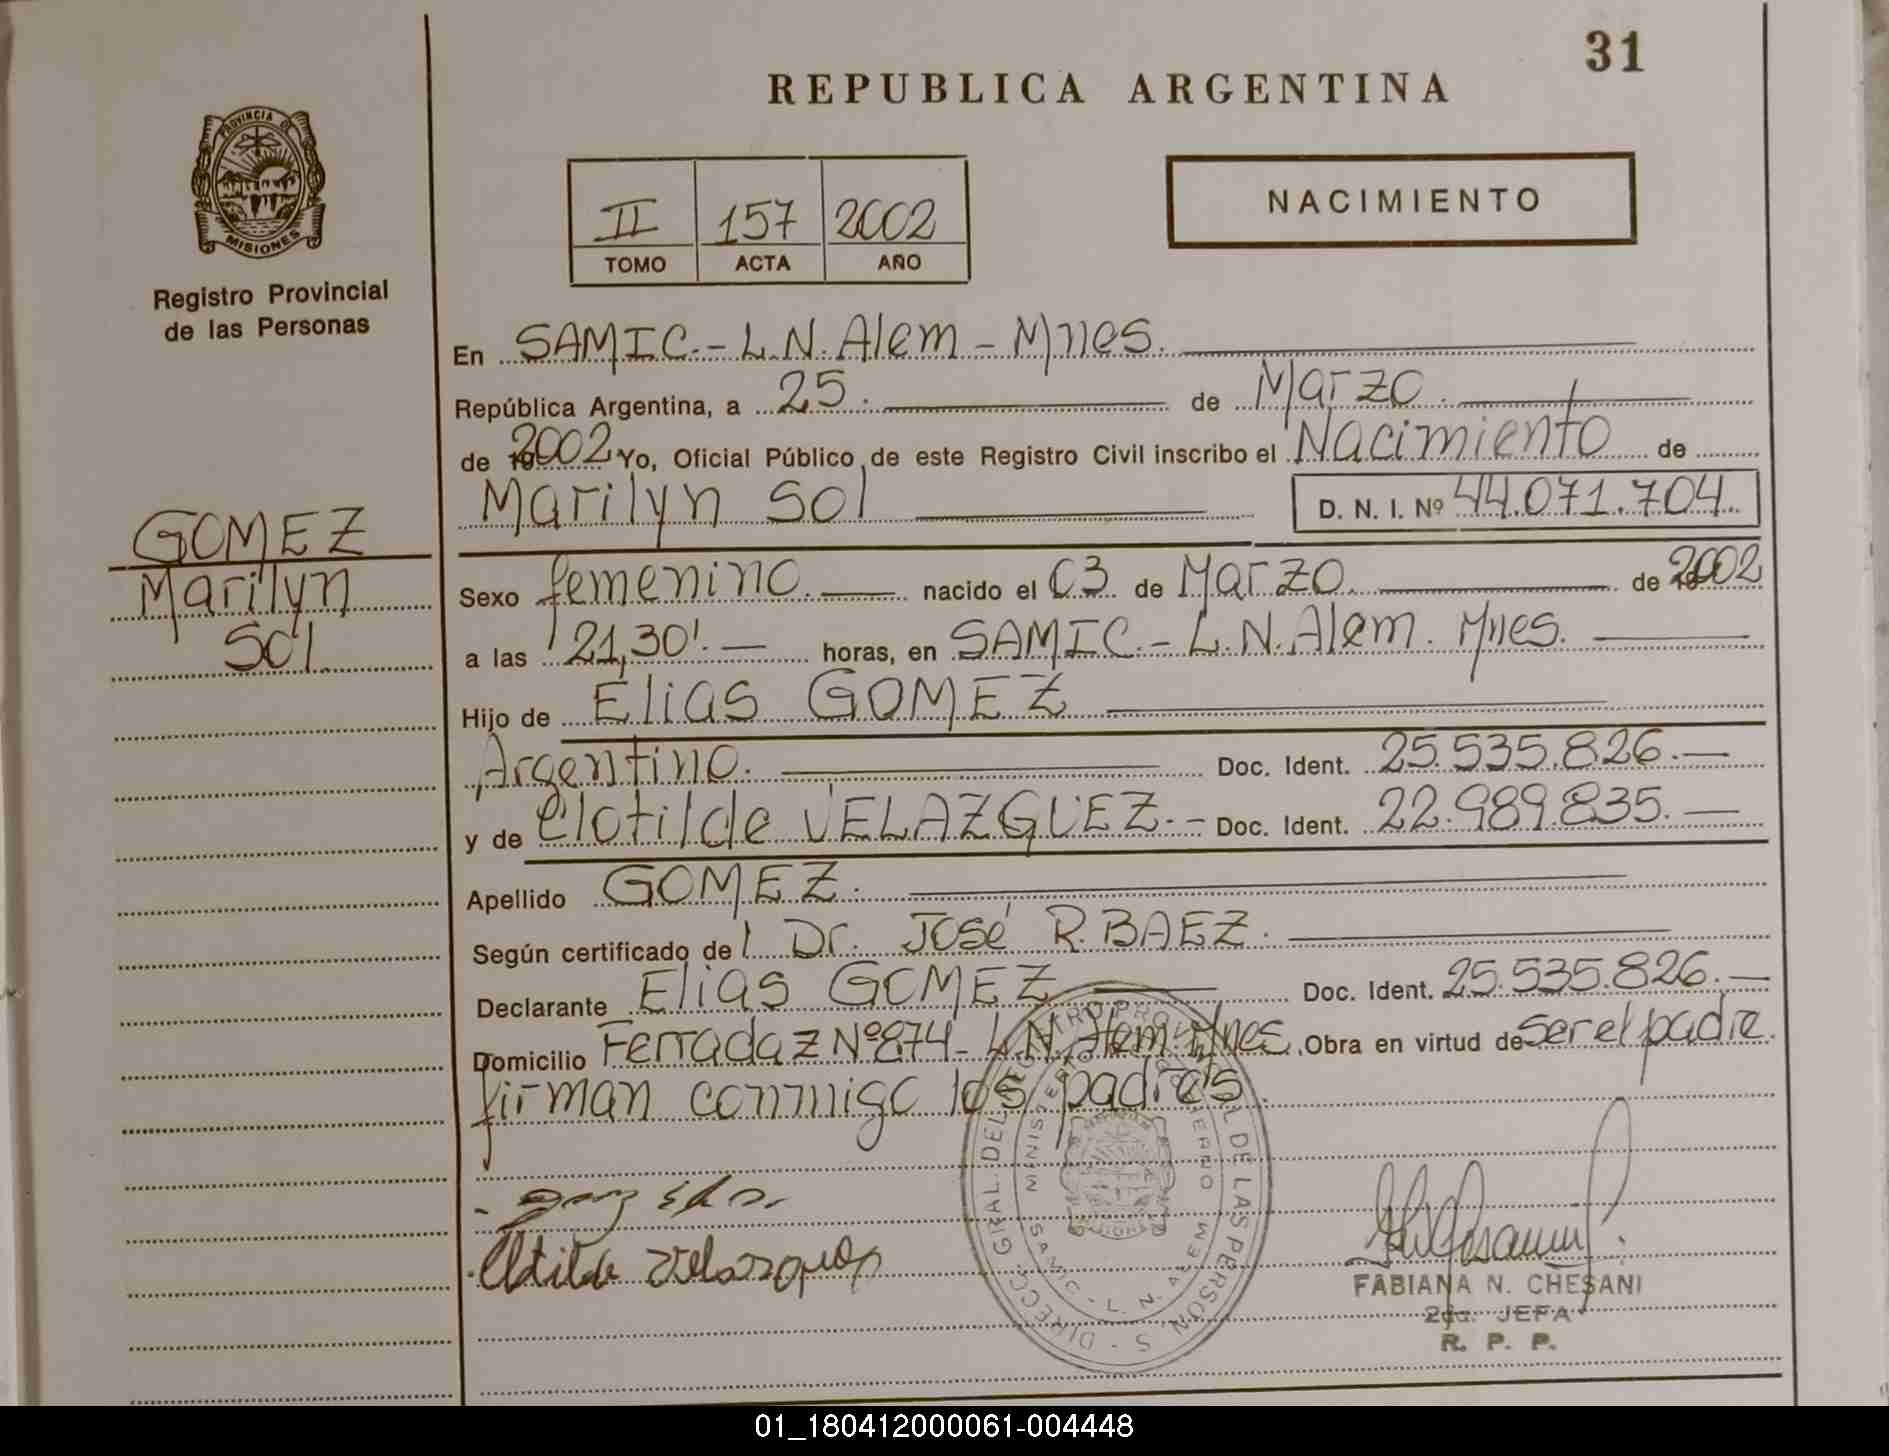 31
REPUBLICA ARGENTINA
PROVINCIA DE
MISIONES
Registro Provincial
de las Personas
II 157 2002
TOMO ACTA AÑO
NACIMIENTO
GOMEZ
Marilyn
Sol
En SAMIC.-L.N.Alem-Mnes.
República Argentina, a 25. de Marzo.
de 2002 Yo, Oficial Público de este Registro Civil inscribo el Nacimiento de
Marilyn Sol D. N. I. Nº 44.071.704.
Sexo femenino. nacido el 03 de Marzo. de 2002
a las 21,30'.- horas, en SAMIC.-L.N.Alem. Mnes.
Hijo de Elias GOMEZ
Argentino. Doc. Ident. 25.535.826.-
y de Clotilde VELAZGUEZ.- Doc. Ident. 22.989.835.-
Apellido GOMEZ.
Según certificado del Dr. José R.BAEZ.
Declarante Elias GOMEZ Doc. Ident. 25.535.826.-
Domicilio Ferradaz Nº874-L.N.Alem.Mnes. Obra en virtud de ser el padre.
firman conmigo los padres.
Clotilde Velasquez
DIRECC. GRAL. DEL REGISTRO PROVINCIAL DE LAS PERSONAS
MINISTERIO DE GOBIERNO
SAMIC - L. N. ALEM
FABIANA N. CHESANI
2da. JEFA
R. P. P.
01_180412000061-004448